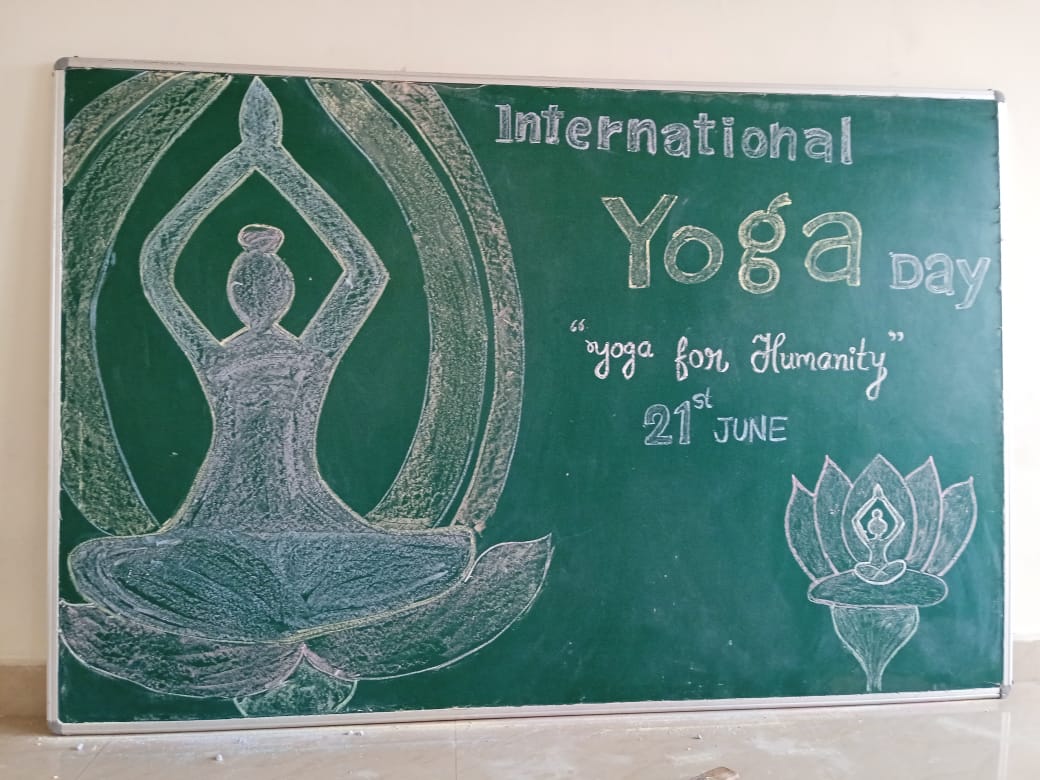 International
Yoga Day
"yoga for Humanity"
21st JUNE